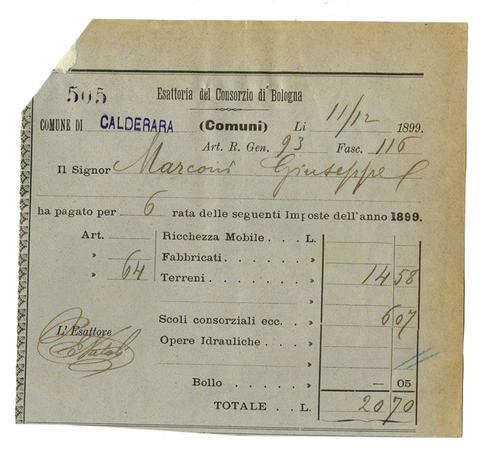 505 Esattoria del Consorzio di Bologna
COMUNE DI CALDERARA (Comuni) Li 11/12 1899.
Art. R. Gen. 93 Fasc. 116
Il Signor Marconi Giuseppe
ha pagato per 6 rata delle seguenti Imposte dell'anno 1899.
Art. Ricchezza Mobile . . . L.
» Fabbricati. . . . . . »
» 64 Terreni . . . . . . . » 14 58
Scoli consorziali ecc. . » 6 07
L'Esattore Opere Idrauliche . . . . »
Bollo . . . . . » — 05
TOTALE . . L. 20 70